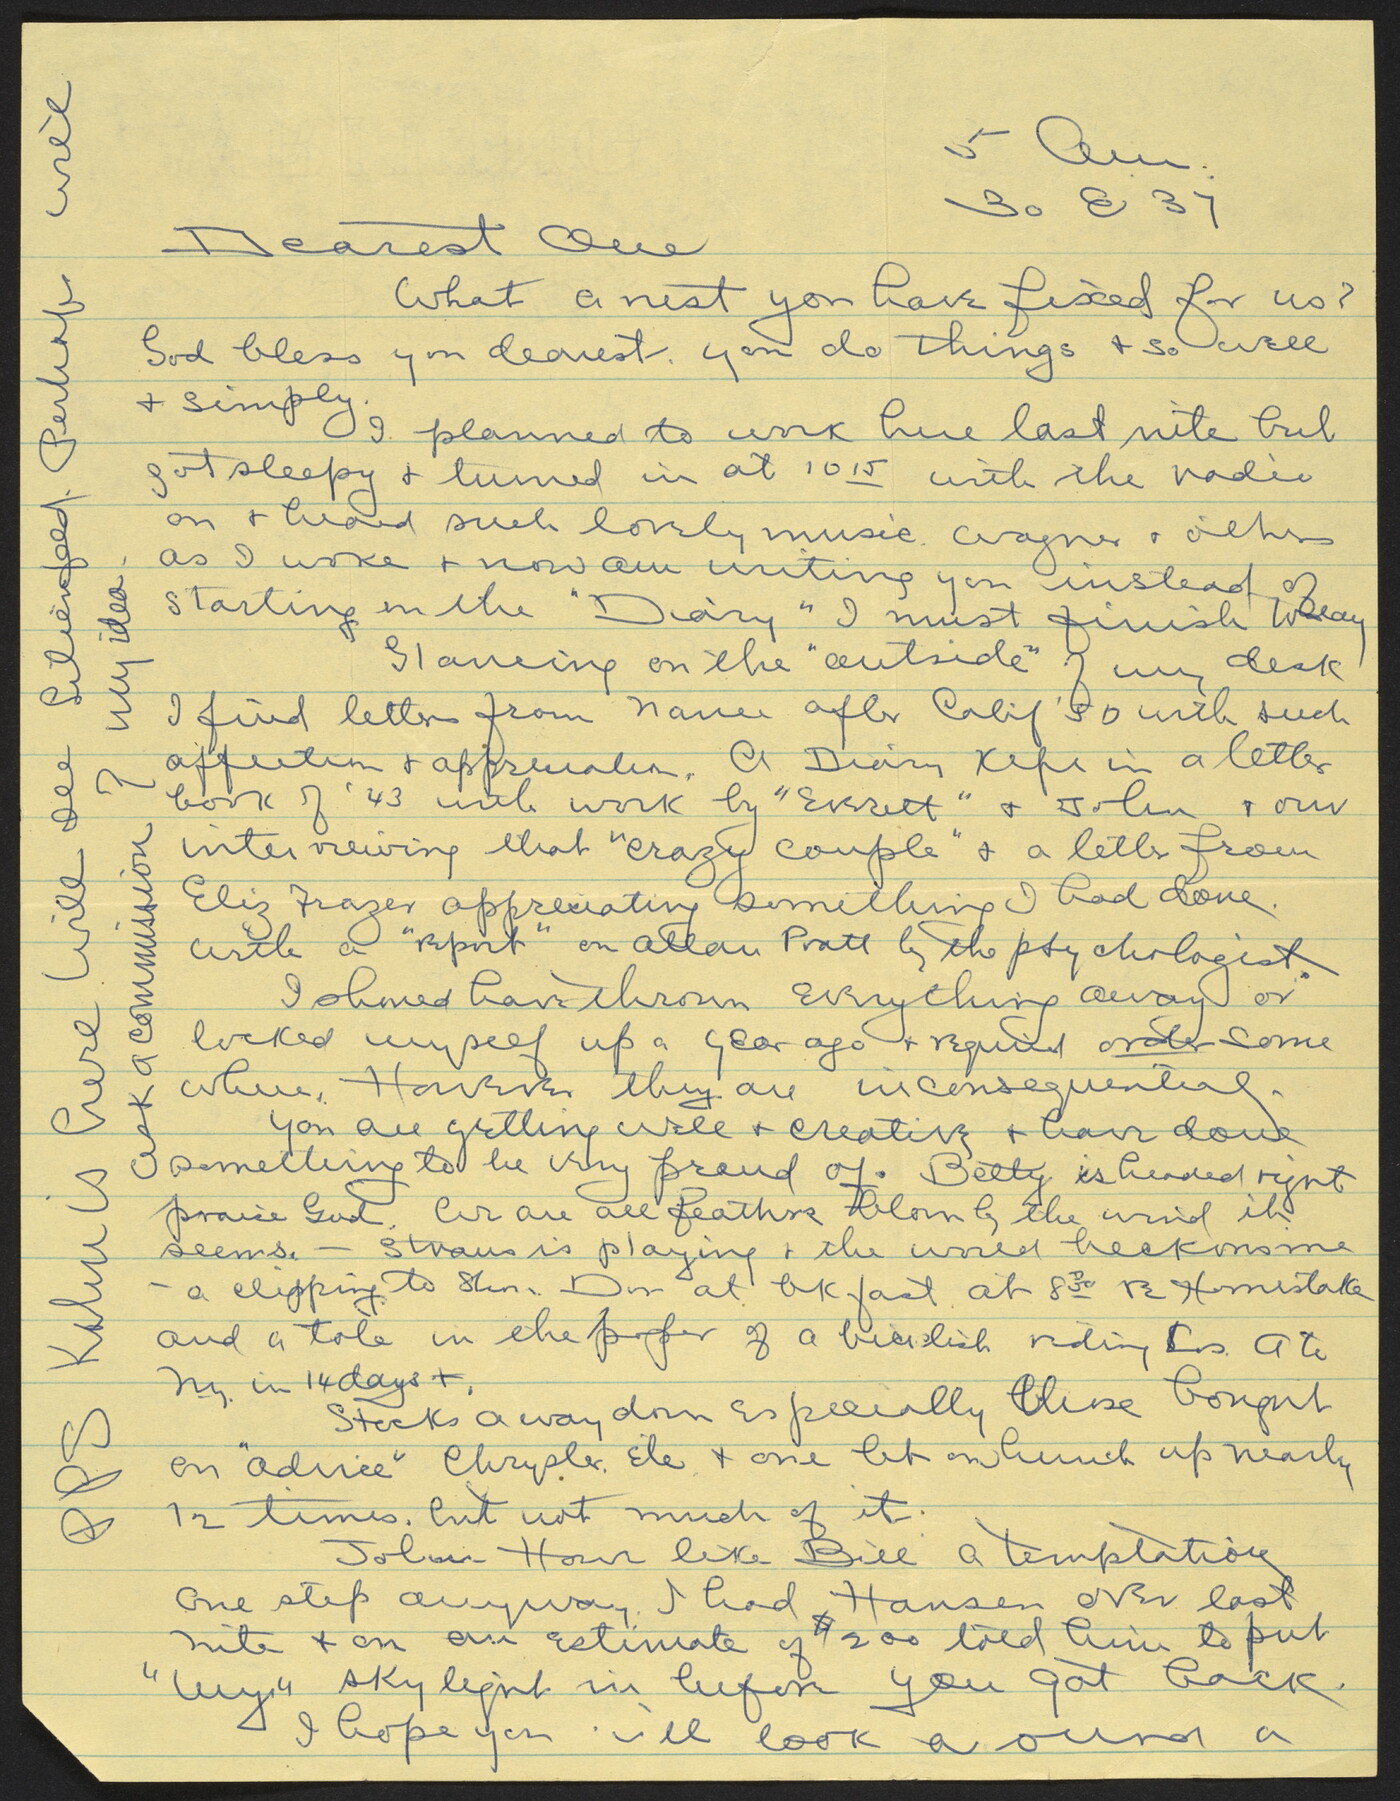 5 Am.
30 E 37
Dearest One
What a nest you have fixed for us?
God bless you dearest. you do things & so well
& simply.
I planned to work here last nite but
got sleepy & turned in at 10 15 with the radio
on & heard such lovely music. Wagner & others
as I woke & now am writing you instead of
starting on the "Diary" I must finish today
Glancing on the "outside" of my desk
I find letters from Nance after Calif '50 with such
affection & appreciation. A Diary kept in a letter
book of '43 with work by "Everett" & John & our
interviewing that "crazy couple" & a letter from
Eliz Frazer appreciating something I had done.
with a "report" on Allan Pratt by the psychologist
I should have thrown everything away or
locked myself up a year ago & required order some
where. However they are inconsequential.
You are getting well & creative & have done
something to be very proud of. Betty is headed right
praise God. We are all feathers blown by the wind it
seems. – Straus is playing & the world beckons me
– a clipping to Don at bkfast at 8 30 re Homestake
and a tale in the paper of a riding Los A to
Ny. in 14 days +.
Stocks away down especially those bought
on "advice" Chrysler. Etc & one bet on hunch up nearly
12 times. but not much of it.
John Howe like Bill a temptation
one step anyway. I had Hansen over last
nite & on an estimate of $200 told him to put
"my" skylight in before you got back.
I hope you will look around a
PPS Kahn is here will see Silienfeld. Perhaps will
ask a commission of my idea.